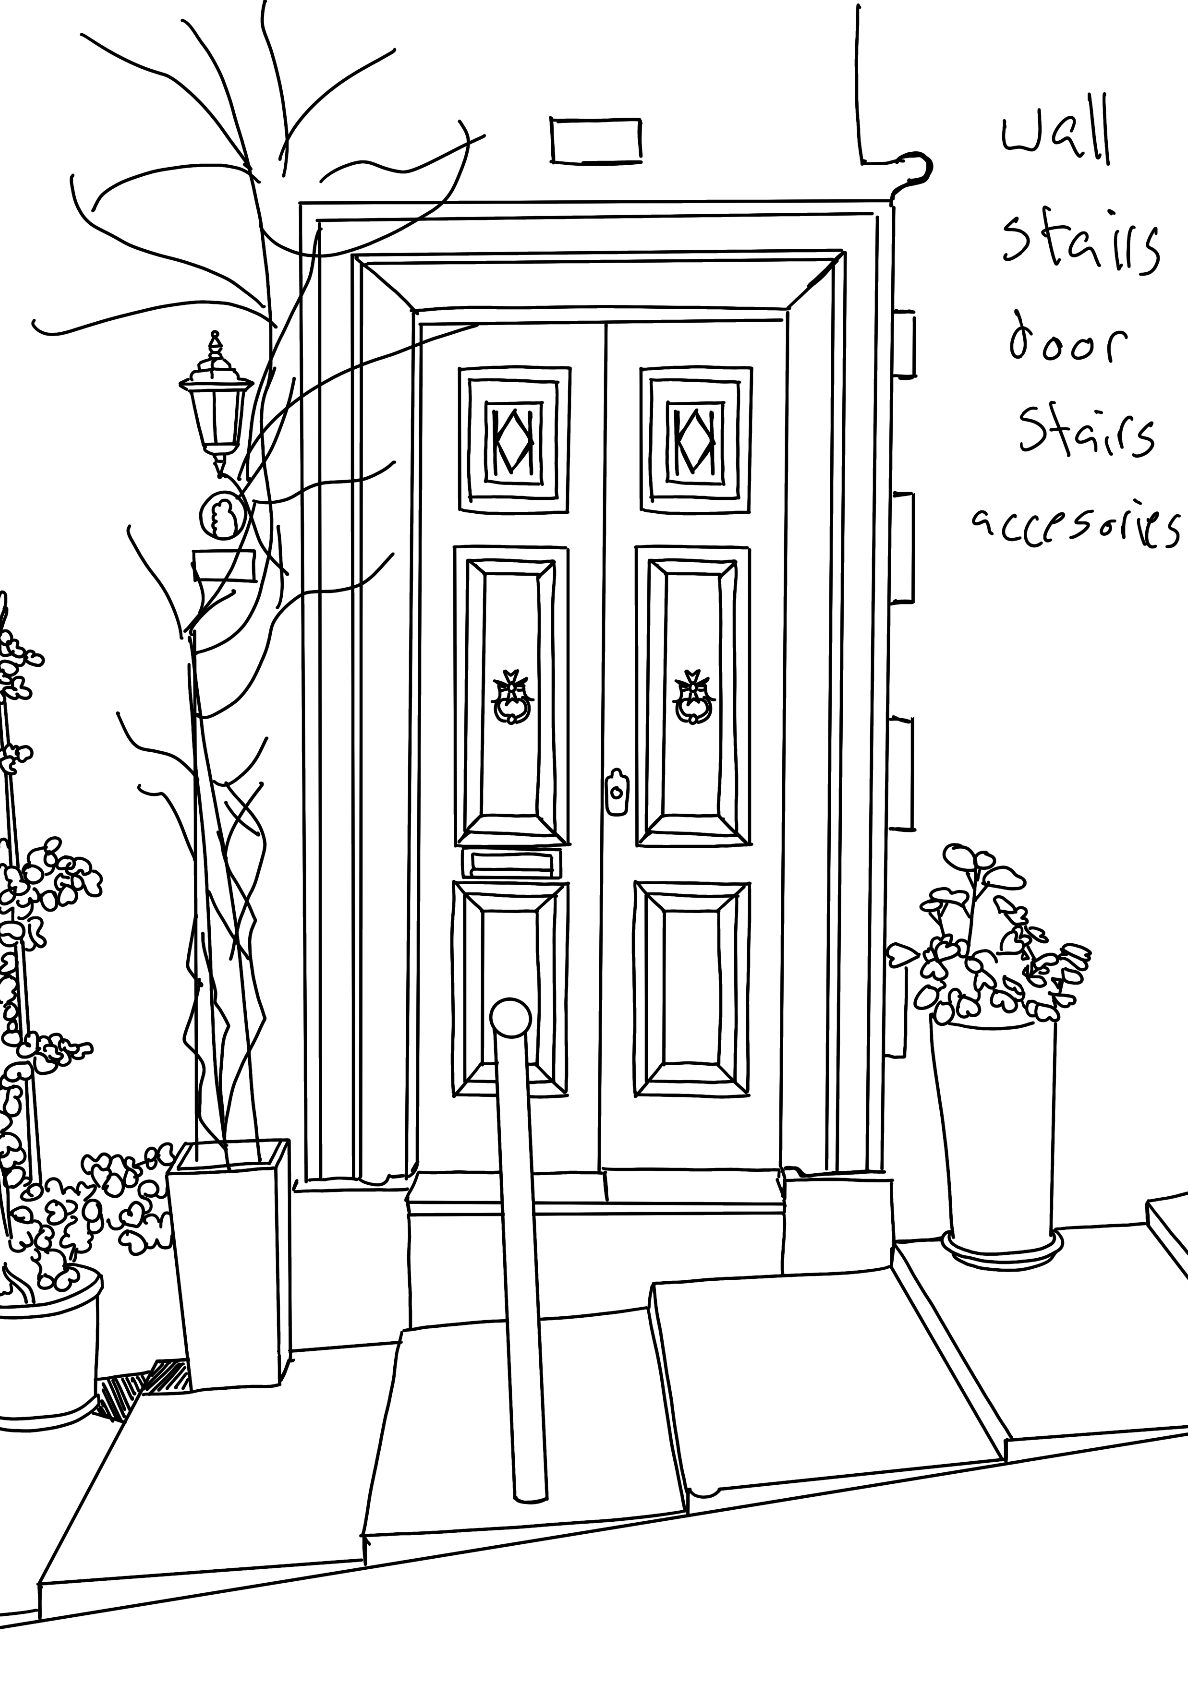 wall
stairs
door
stairs
accesories